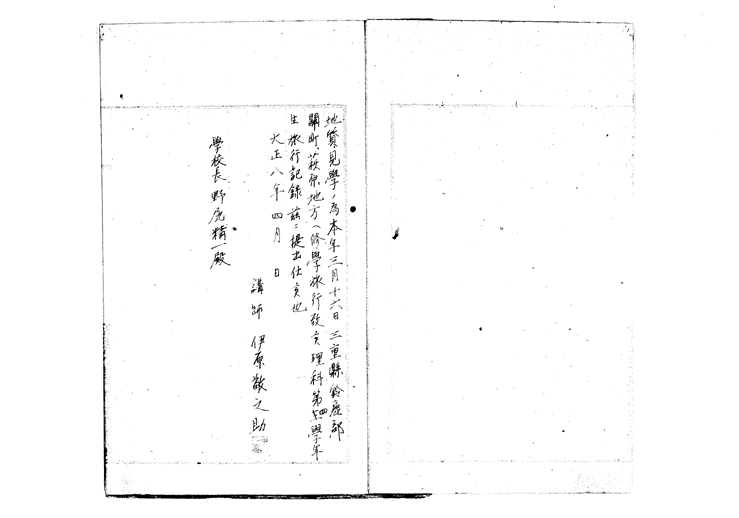 地質見學ノ為本年三月十六日三重縣鈴鹿郡
關町、萩原地方ヘ修學旅行致候理科第四學年
生旅行記録茲ニ提出仕候也
大正八年四月　日
講師　伊原敬之助
學校長　野尻精一殿